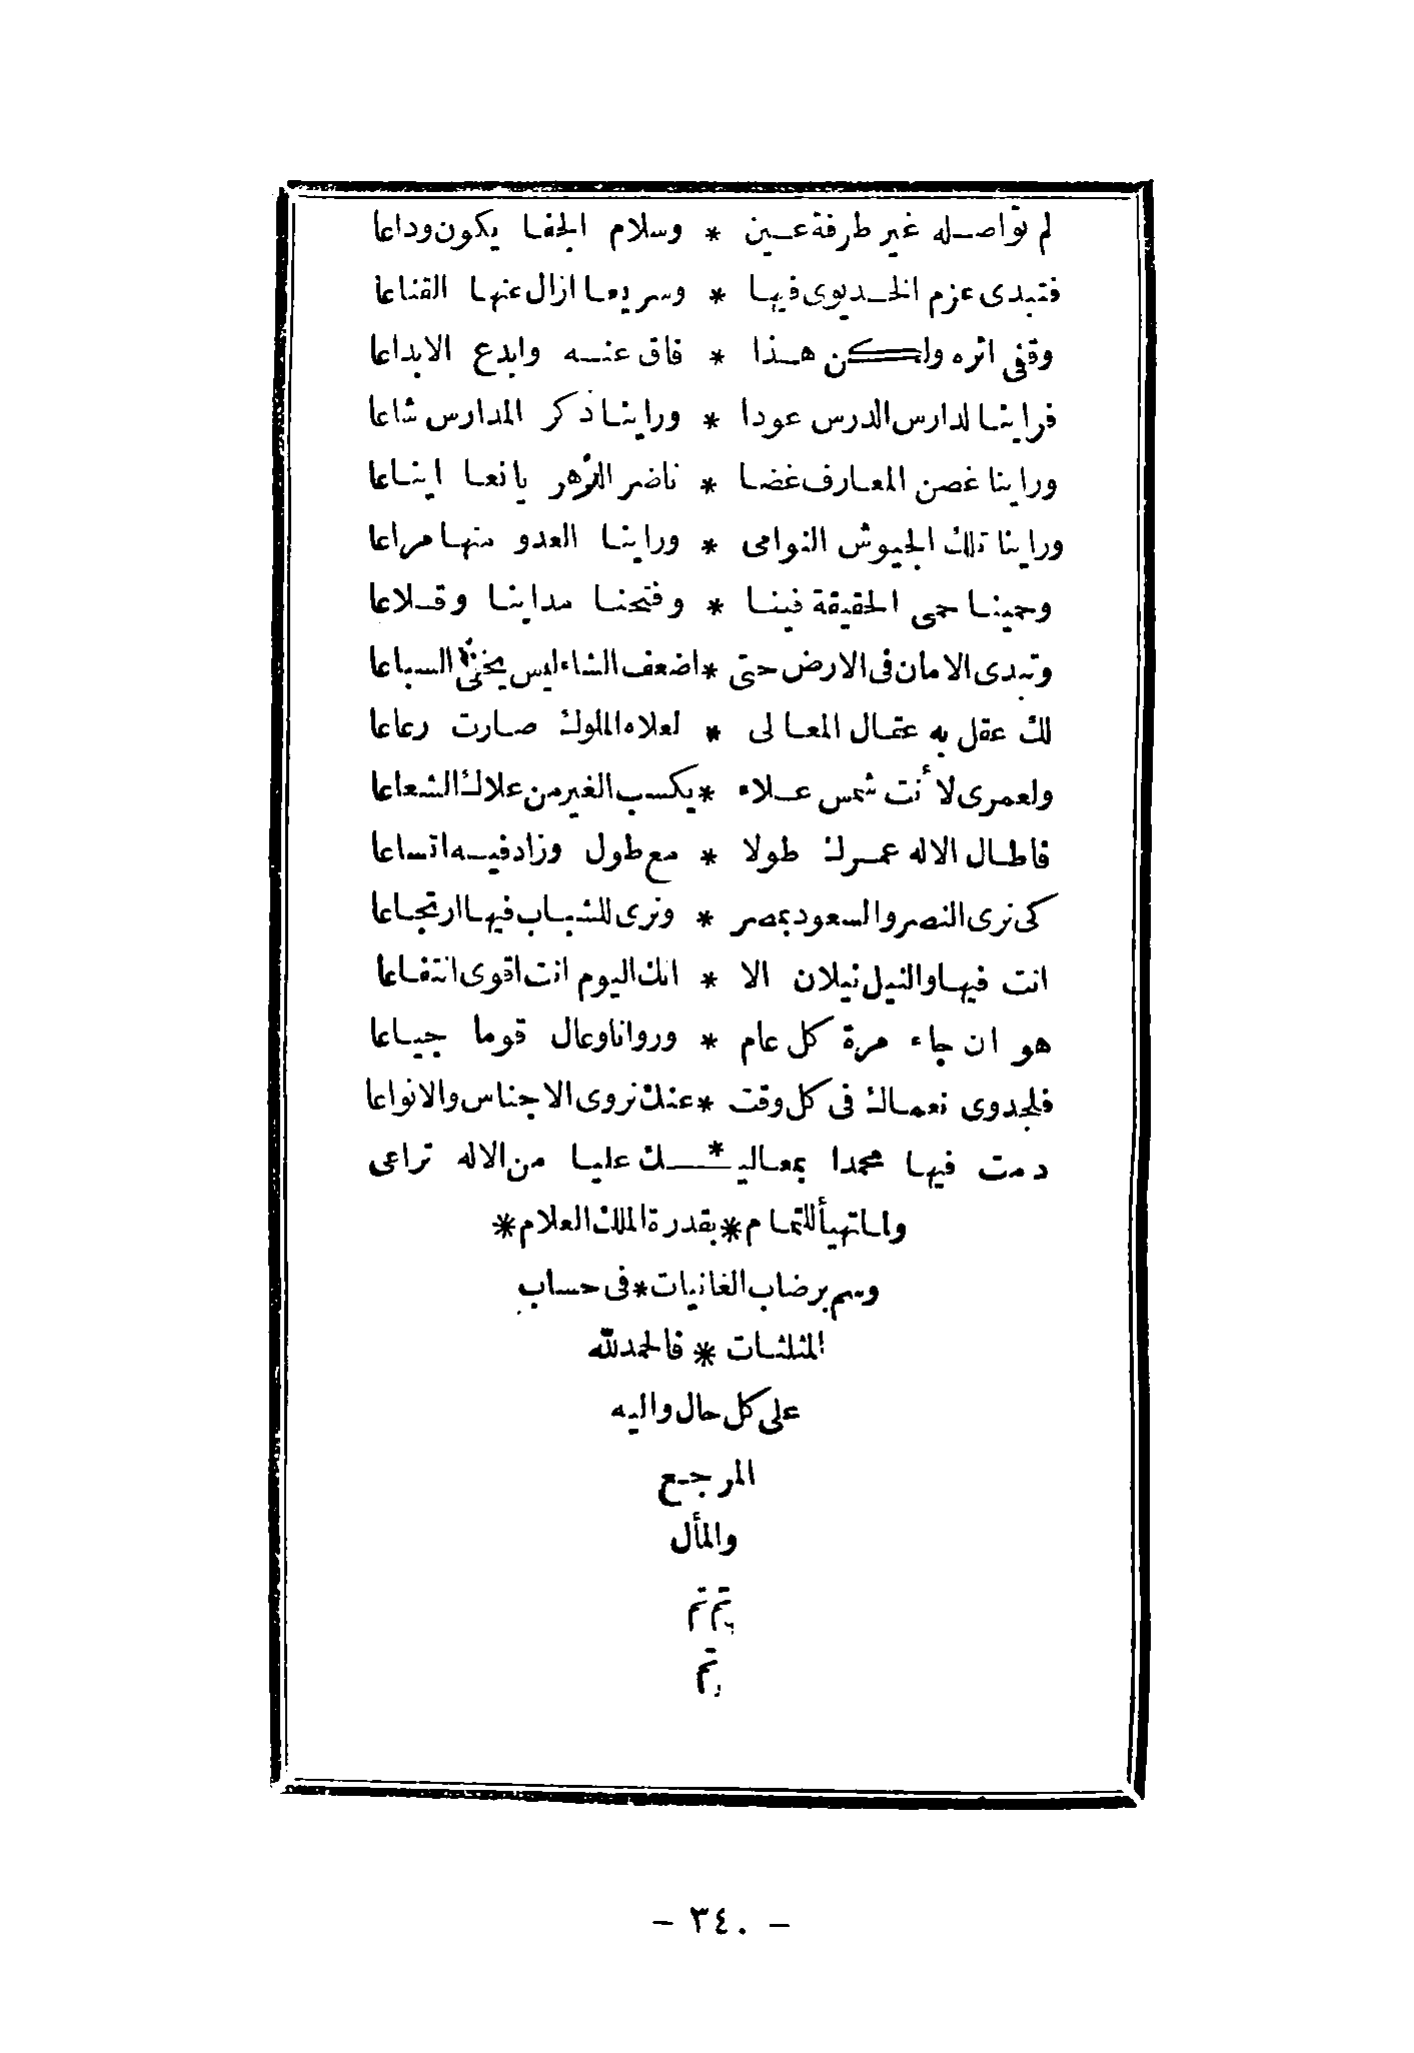 لم نواصله غير طرفة عين * وسلام الجفا يكون وداعا
فتبدى عزم الخديوى فيها * وسريعا ازال عنها القناعا
وقفى اثره ولكن هذا * فاق عنه وابدع الابداعا
فراينا لدارس الدرس عودا * وراينا ذكر المدارس شاعا
وراينا غصن المعارف غضا * ناضر الزهر يانعا ايناعا
وراينا تلك الجيوش النوامى * وراينا العدو منها مراعا
وحمينا حمى الحقيقة فينا * وفتحنا مداينا وقلاعا
وتبدى الامان فى الارض حتى * اضعف الشاء ليس يخشى السباعا
لك عقل به عقال المعالى * لعلاه الملوك صارت رعاعا
ولعمرى لأنت شمس علاء * يكسب الغير من علاك الشعاعا
فاطال الاله عمرك طولا * مع طول وزاد فيه اتساعا
كى نرى النصر والسعود بمصر * ونرى للشباب فيها ارتجاعا
انت فيها والنيل نيلان الا * انك اليوم انت اقوى انتفاعا
هو ان جاء مرة كل عام * وروانا وعال قوما جياعا
فلجدوى نعماك فى كل وقت * عنك نروى الاجناس والانواعا
دمت فيها محمدا بمعاليـ * ـك عليا من الاله تراعى
ولما تهيأ للتمام * بقدرة الملك العلام *
وسم برضاب الغانيات * فى حساب
المثلثات * فالحمد لله
على كل حال واليه
المرجع
والمأل
تم تم
تم
- ٣٤٠ -